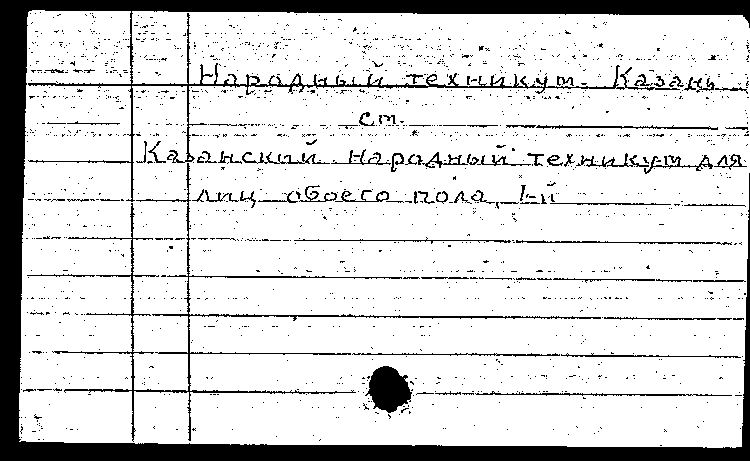 Народный техникум. Казань
ст.
Казанский народный техникум для
лиц обоего пола, 1-й